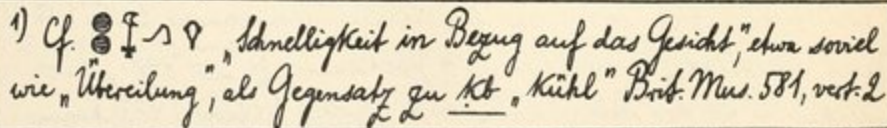 1) Cf. „Schnelligkeit in Bezug auf das Gesicht“, etwa soviel
wie „Übereilung“, als Gegensatz zu ḳb „Kühl“ Brit. Mus. 581, vert. 2